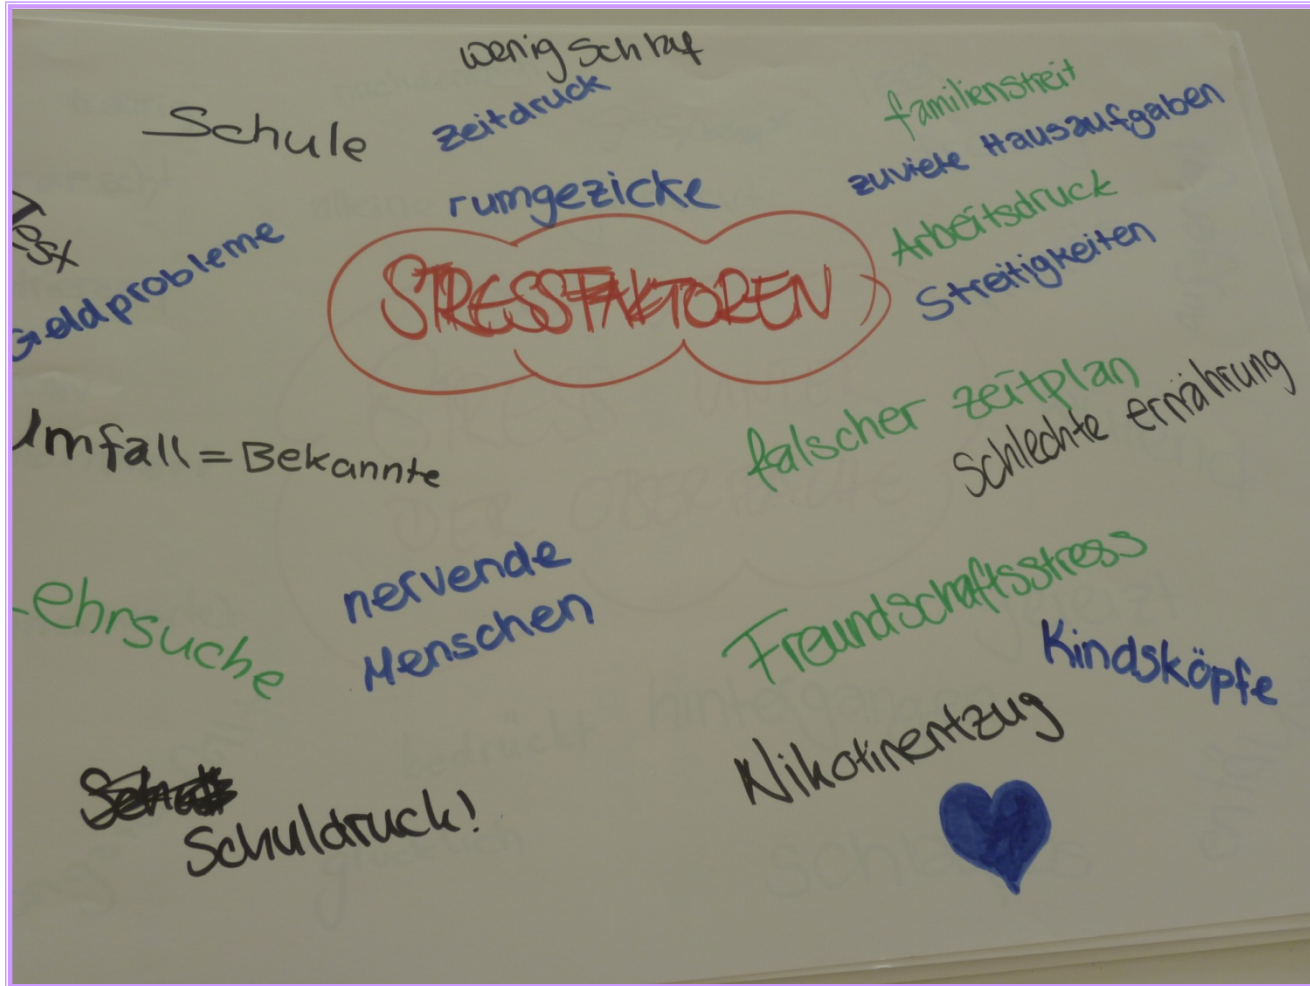 wenig Schlaf
Schule
zeitdruck
familienstreit
zuviele Hausaufgaben
rumgezicke
Arbeitsdruck
Test
Geldprobleme
STRESSFAKTOREN
Streitigkeiten
falscher zeitplan
schlechte ernährung
Umfall = Bekannte
nervende
Menschen
Lehrsuche
Freundschaftsstress
Kindsköpfe
Nikotinentzug
Schuldruck!